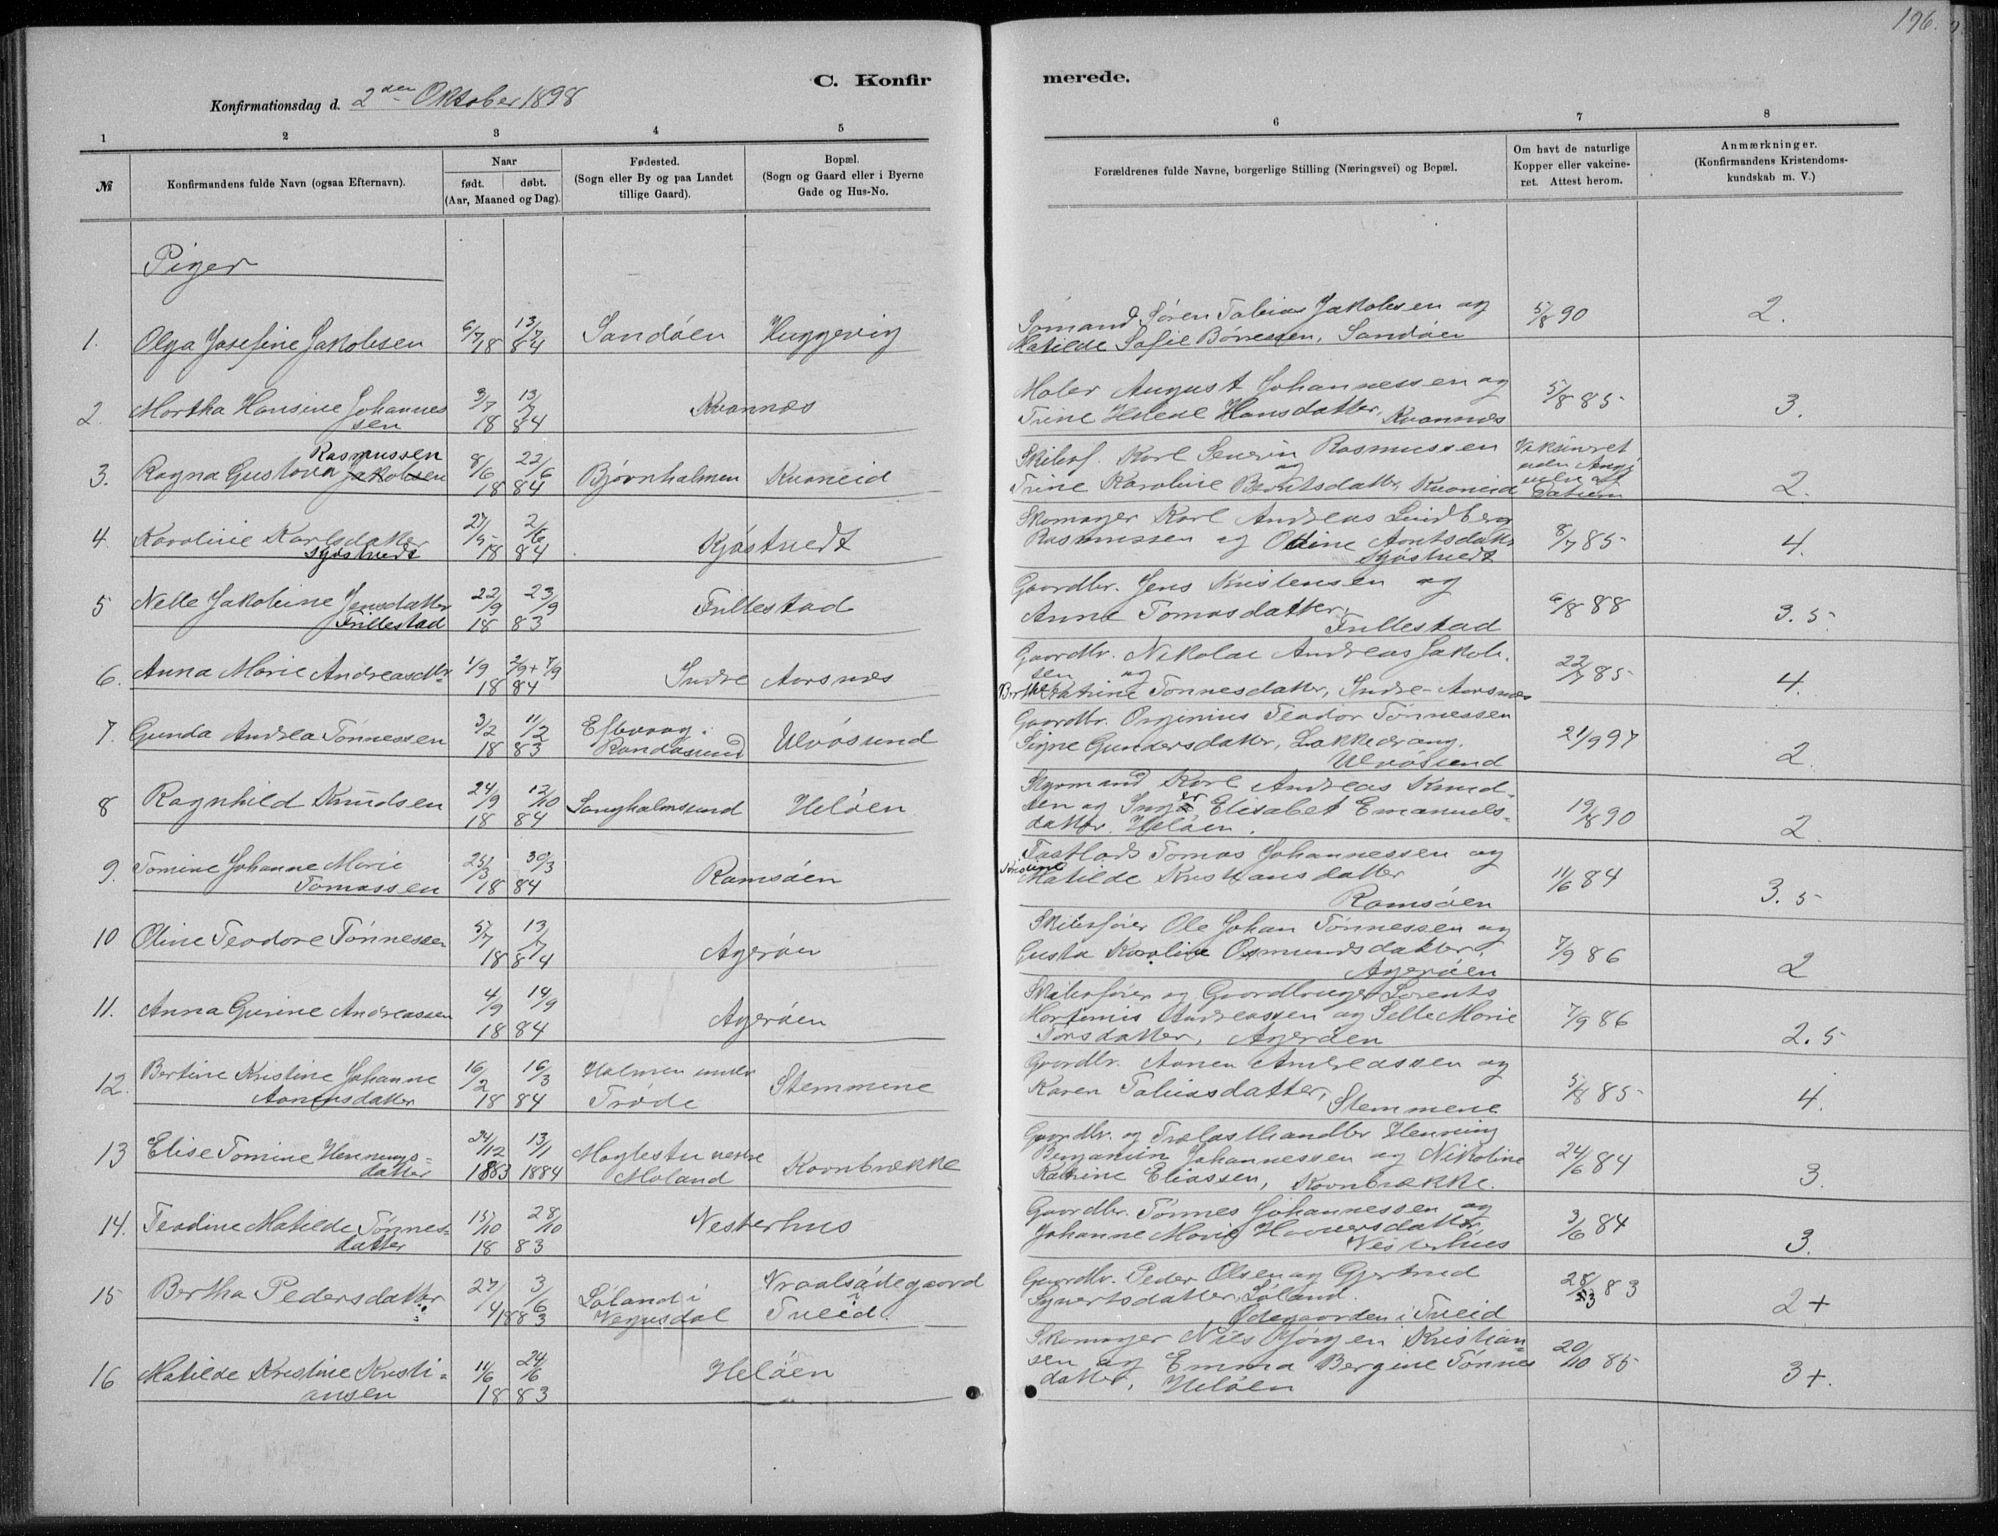 196.
C. Konfirmerede.
Konfirmationsdag d. 2den Oktober 1898
1 2 3 4 5 6 7 8
№
Konfirmandens fulde Navn (ogsaa Efternavn).
Naar
født. døbt.
(Aar, Maaned og Dag).
Fødested.
(Sogn eller By og paa Landet
tillige Gaard).
Bopæl.
(Sogn og Gaard eller i Byerne
Gade og Hus-No.
Forældrenes fulde Navne, borgerlige Stilling (Næringsvei) og Bopæl.
Om havt de naturlige
Kopper eller vakcine-
ret. Attest herom.
Anmærkninger.
(Konfirmandens Kristendoms-
kundskab m. V.)
Piger
1. Olga Josefine Jakobsen 6/7 1884 13/7 Sandöen Huggevig
Sömand Sören Tobias Jakobsen og
Matilde Sofie Börresen, Sandöen 5/8 90 2.
2. Martha Hansine Johannes
sen 3/7 1884 13/7 Kvannæs
Maler August Johannessen og
Trine Helene Hansdatter, Kvannæs 5/8 85 3.
3. Ragna Gustava Jakobsen Rasmussen 8/6 1884 22/6 Bjørnholmen Kvaneid
Skibsf. Karl Severin Rasmussen
og
Trine Karoline Berntsdatter, Kvaneid Vaksineret 2.
4. Karoline Karlsdatter
Kjøstvedt 27/5 1884 2/6 Kjøstvedt
Skomager Karl Andreas Lindberg
Rasmussen og Otine Arntsdatter
Kjøstvedt 8/7 85 4.
5 Nelle Jakobine Jensdatter
Frillestad 22/9 1883 23/9 Frillestad
Gaardbr. Jens Kristensen og
Anne Tomasdatter,
Frillestad 6/8 88 3.5
6. Anna Marie Andreasdtr 1/9 1884 2/9 + 7/9 Indre Aarsnæs
Gaardbr. Nikolai Andreas Jakob-
sen og
Berthe Katrine Tönnesdatter, Indre-Aarsnæs 22/7 85 4.
7. Gunda Andrea Tönnessen 3/2 1883 11/2 Eftevaag i
Randøsund Ulvösund
Gaardbr. Orginius Teodor Tönnessen
Signe Gundersdatter, Lakkedrang,
Ulvösund 21/9 97 2.
8 Ragnhild Knudsen 24/9 1884 12/10 Langholmsund Helöen
Styrmand Karl Andreas Knud-
sen og Inger Elisabet Emanuels-
datter. Helöen. 19/8 90 2.
9. Tomine Johanne Marie
Tomassen 25/3 1884 30/3 Ramsöen
Fastlods Tomas Johannessen og
Kristine Matilde Kristiansdatter
Ramsöen 11/6 84 3.5
10 Oline Teodore Tönnessen 5/7 1884 13/7 Agerøen
Skibsfører Ole Johan Tönnessen og
Gusta Karoline Osmundsdatter,
Agerøen 7/9 86 2
11. Anna Gurine Andreassen 4/9 1884 14/9 Agerøen
Skibsfører og Gaardbruger Lorents
Martinius Andreassen og Selle Marie
Torsdatter, Agerøen 7/9 86 2.5
12. Bertine Kristine Johanne
Aanensdatter 16/2 1884 16/3 Holmen under
Trøde Stemmene
Gaardbr. Aanen Andreassen og
Karen Tobiasdatter,
Stemmene 5/8 85 4.
13 Elise Tomine Hennings-
datter 24/12 1883 13/1 1884 Moglestu vestre
Moland Kornbrække
Gaardbr. og Trælasthandler Henning
Benjamin Johannessen og Nikoline
Katrine Eliassen, Kornbrække. 24/6 84 3.
14. Teodine Matilde Tönnes-
datter 15/10 1883 28/10 Vesterhus
Gaardbr. Tönnes Johannessen og
Johanne Marie Havorsdatter,
Vesterhus 3/6 84 3.
15 Bertha Pedersdatter 27/4 1883 3/6 Løland i
Vegusdal Vraalsødegaard
Tveid.
Gaardbr. Peder Olsen og Gjertrud
Syvertsdatter, Løland.
Ødegaarden i Tveid 28/3 83 2+
16 Matilde Kristine Kristi-
ansen 11/6 1883 24/6 Helöen
Skomager Nils Jörgen Kristian-
sen og Emma Bergine Tönnes
datter, Helöen 20/10 85 3+.